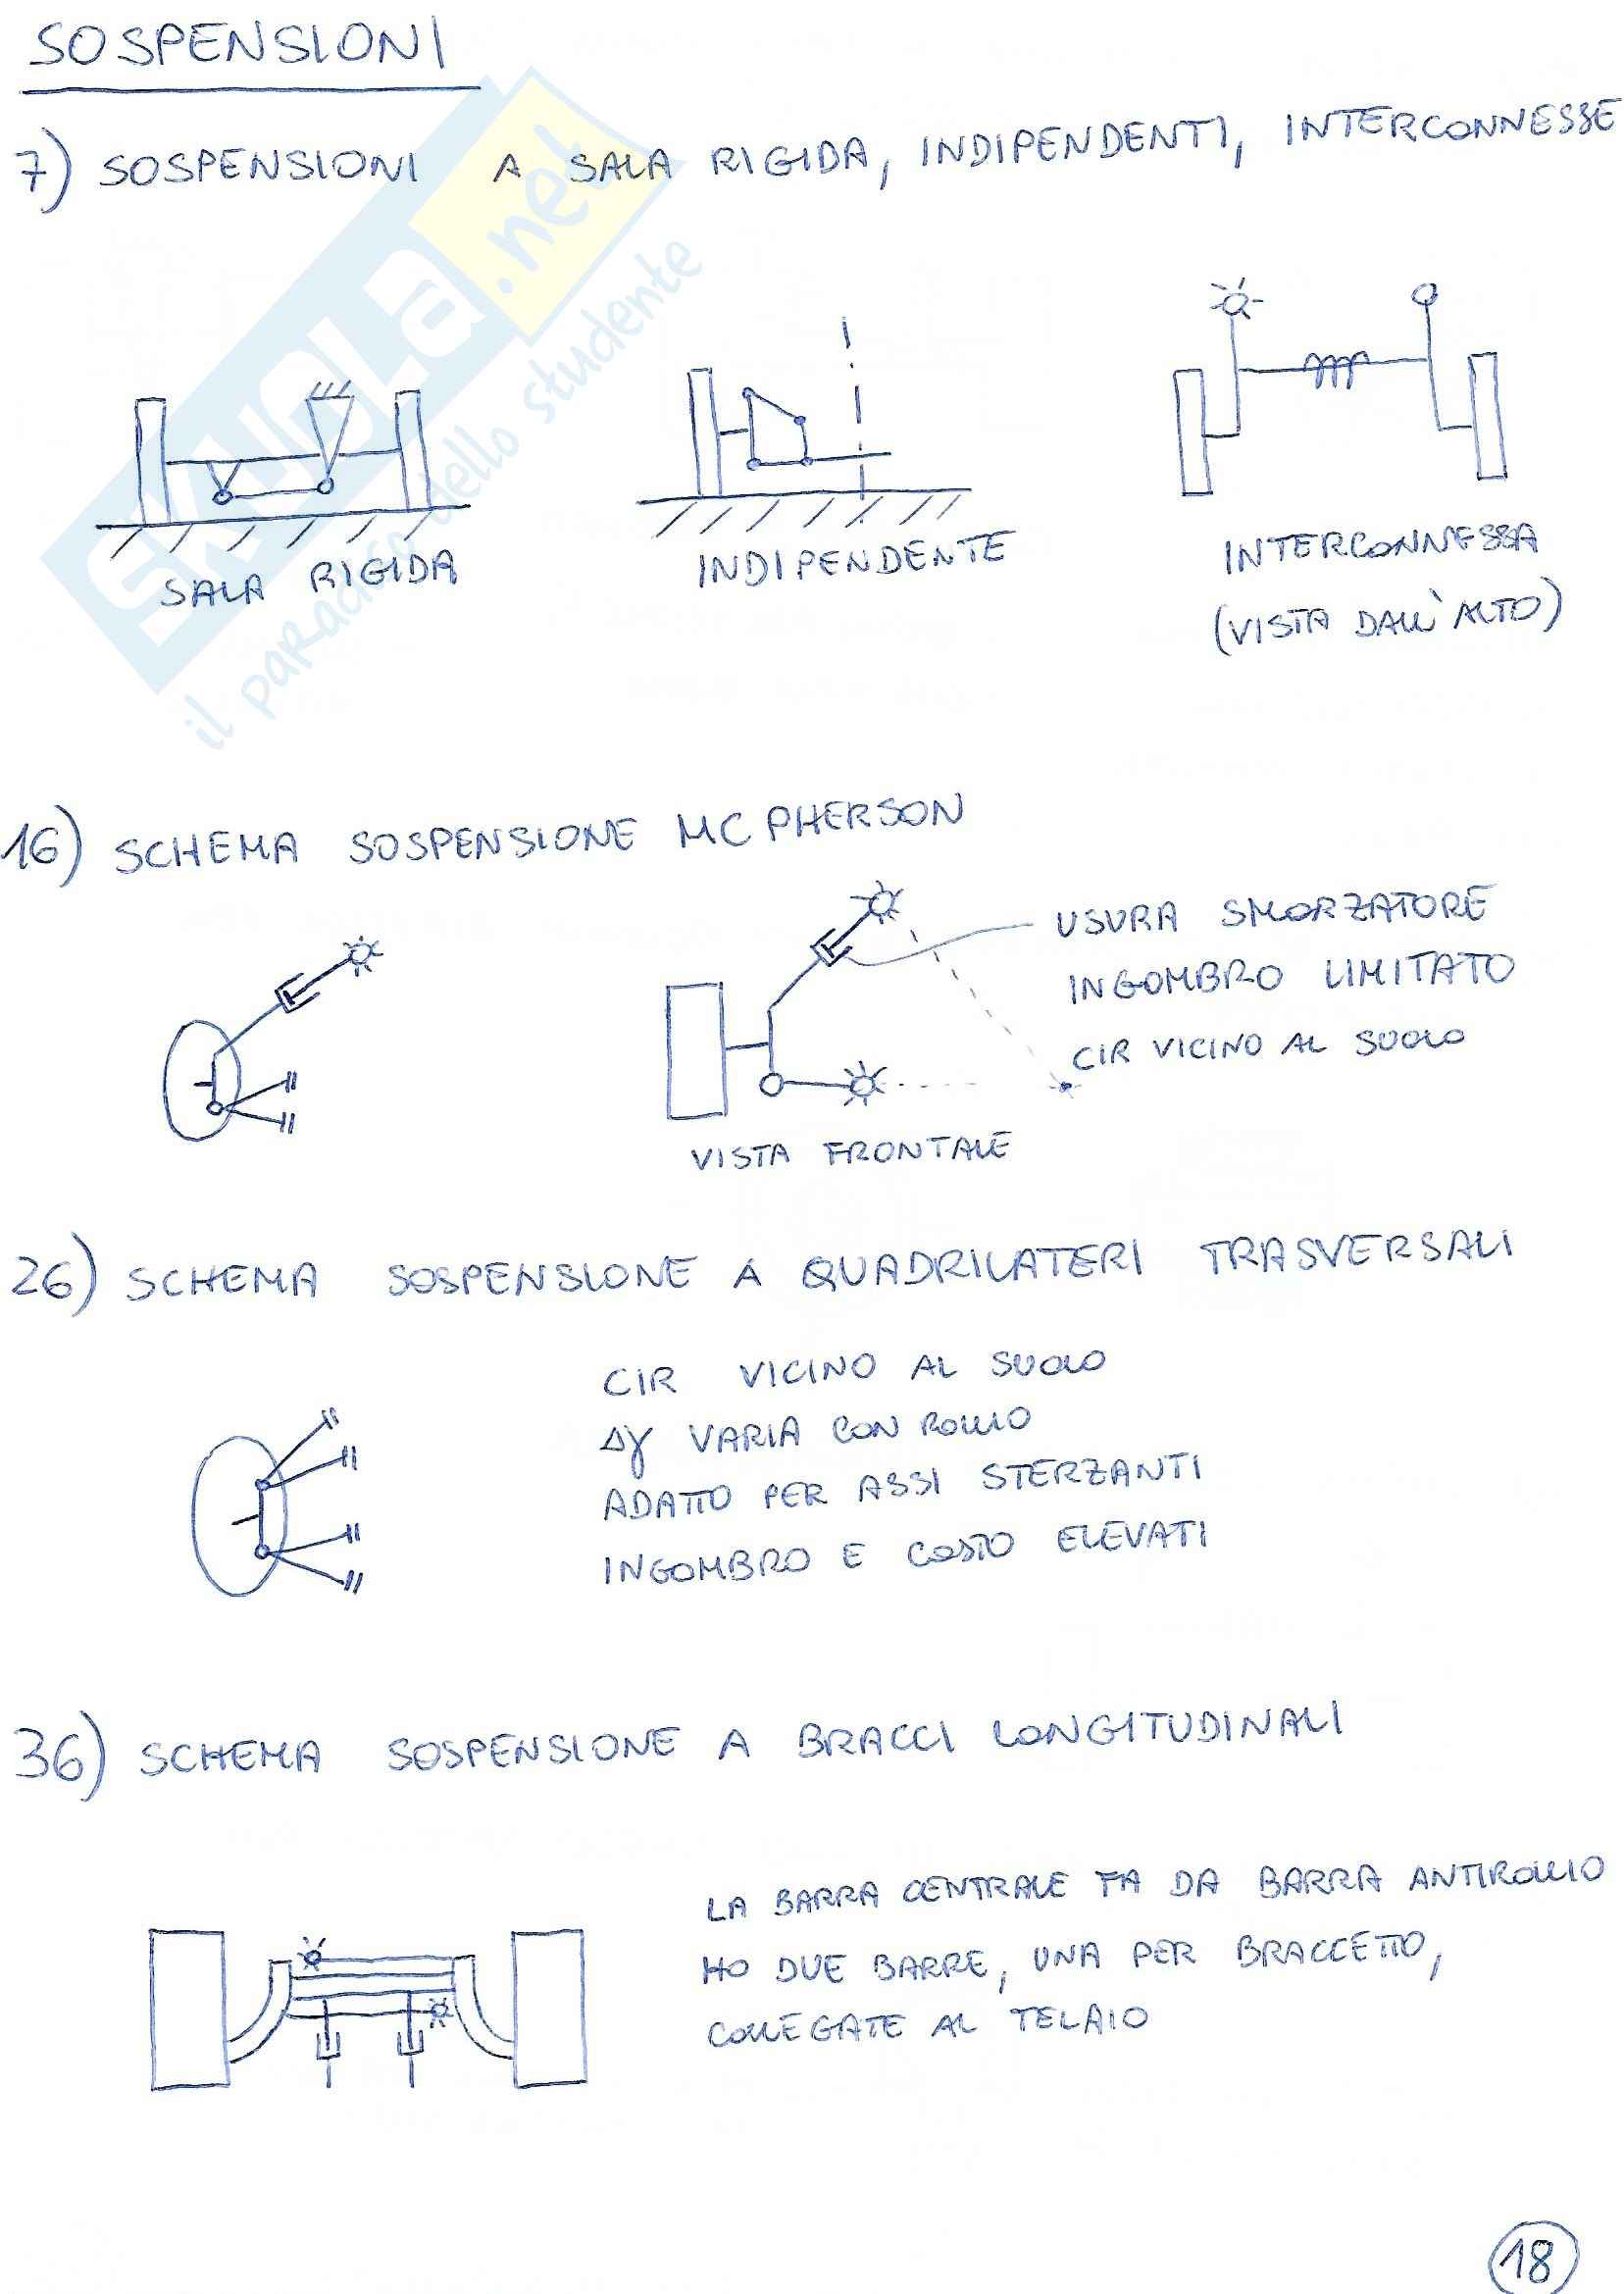 SOSPENSIONI
7) SOSPENSIONI A SALA RIGIDA, INDIPENDENTI, INTERCONNESSE
SKUOLA.net
il paradiso dello studente
SALA RIGIDA
INDIPENDENTE
INTERCONNESSA
(VISTA DALL'ALTO)
16) SCHEMA SOSPENSIONE MCPHERSON
USURA SMORZATORE
INGOMBRO LIMITATO
CIR VICINO AL SUOLO
VISTA FRONTALE
26) SCHEMA SOSPENSIONE A QUADRILATERI TRASVERSALI
CIR VICINO AL SUOLO
Δγ VARIA CON ROLLIO
ADATTO PER ASSI STERZANTI
INGOMBRO E COSTO ELEVATI
36) SCHEMA SOSPENSIONE A BRACCI LONGITUDINALI
LA BARRA CENTRALE FA DA BARRA ANTIROLLIO
HO DUE BARRE, UNA PER BRACCETTO,
COLLEGATE AL TELAIO
18